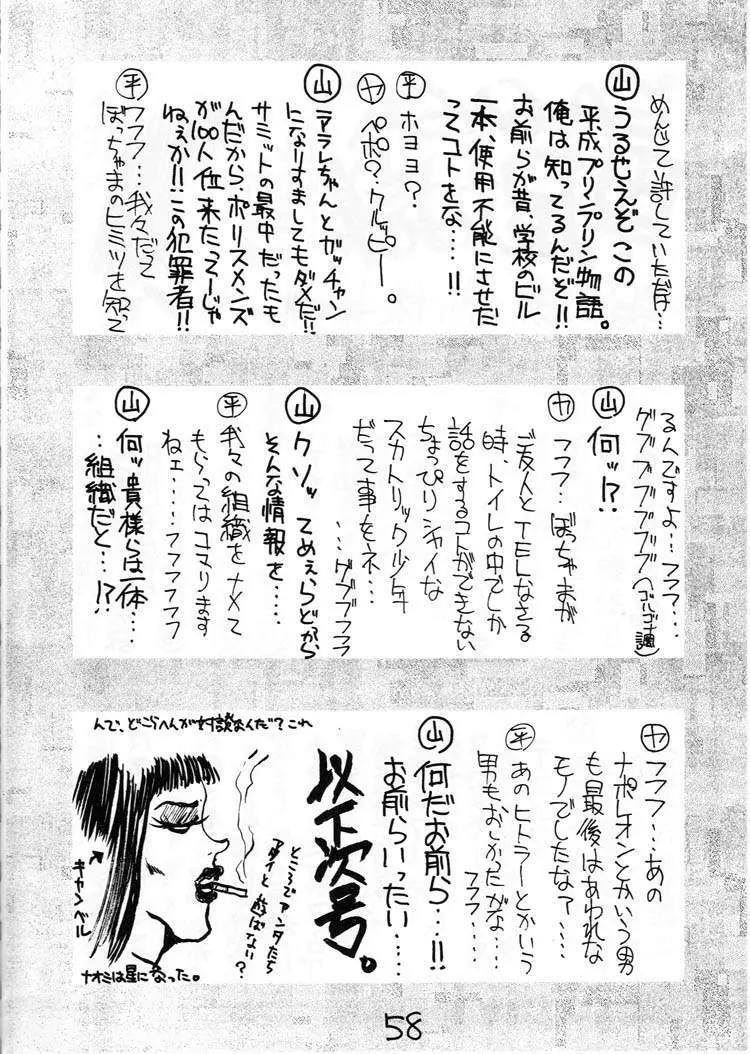 めんじて許していただけ…
㊤うるせえぞこの
平成プリンプリン物語。
俺は知ってるんだぞ!!
お前らが昔、学校のビル
一本、使用不能にさせた
ってコトをな…!!
㊥ホヨヨ?
ヤ ペポ?クルッピー。
山 アラレちゃんとガッチャン
になりすましてもダメだ!!
サミットの最中だったも
んだから、ポリスメンズ
が100人位来たってーじゃ
ねぇか!!この犯罪者!!
平 ワフフ…我々だって
ぼっちゃまのヒミツを知って
るんですよ…フフフ…
グブブブブブブ(ゴルゴナ調)
山 何ッ!?
ヤ フフフ…ぼっちゃまが
ご友人とTELしなさる
時、トイレの中でしか
話をするコトができない
ちょっぴりシャイな
スカトリック少年
だって事をネ…
…グブブフフフ
山 クソッてめぇらどから
そんな情報を……
平 我々の組織をナメて
もらってはコマります
ねェ……フフフフフ
山 何ッ貴様らは一体……
…組織だと…!?
ヤ フフフ…あの
ナポレオンとかいう男
も最後はあわれな
モノでしたなァ……
平 あのヒトラーとかいう
男もおしかったがな…
フフフ…
山 何だお前ら…!!
お前らいったい……
以下次号。
んで、どこらへんが対談なんだ?これ
ところでアンタたち
アタイと遊ばない?
←キャンベル
ナオミは星になった。
58